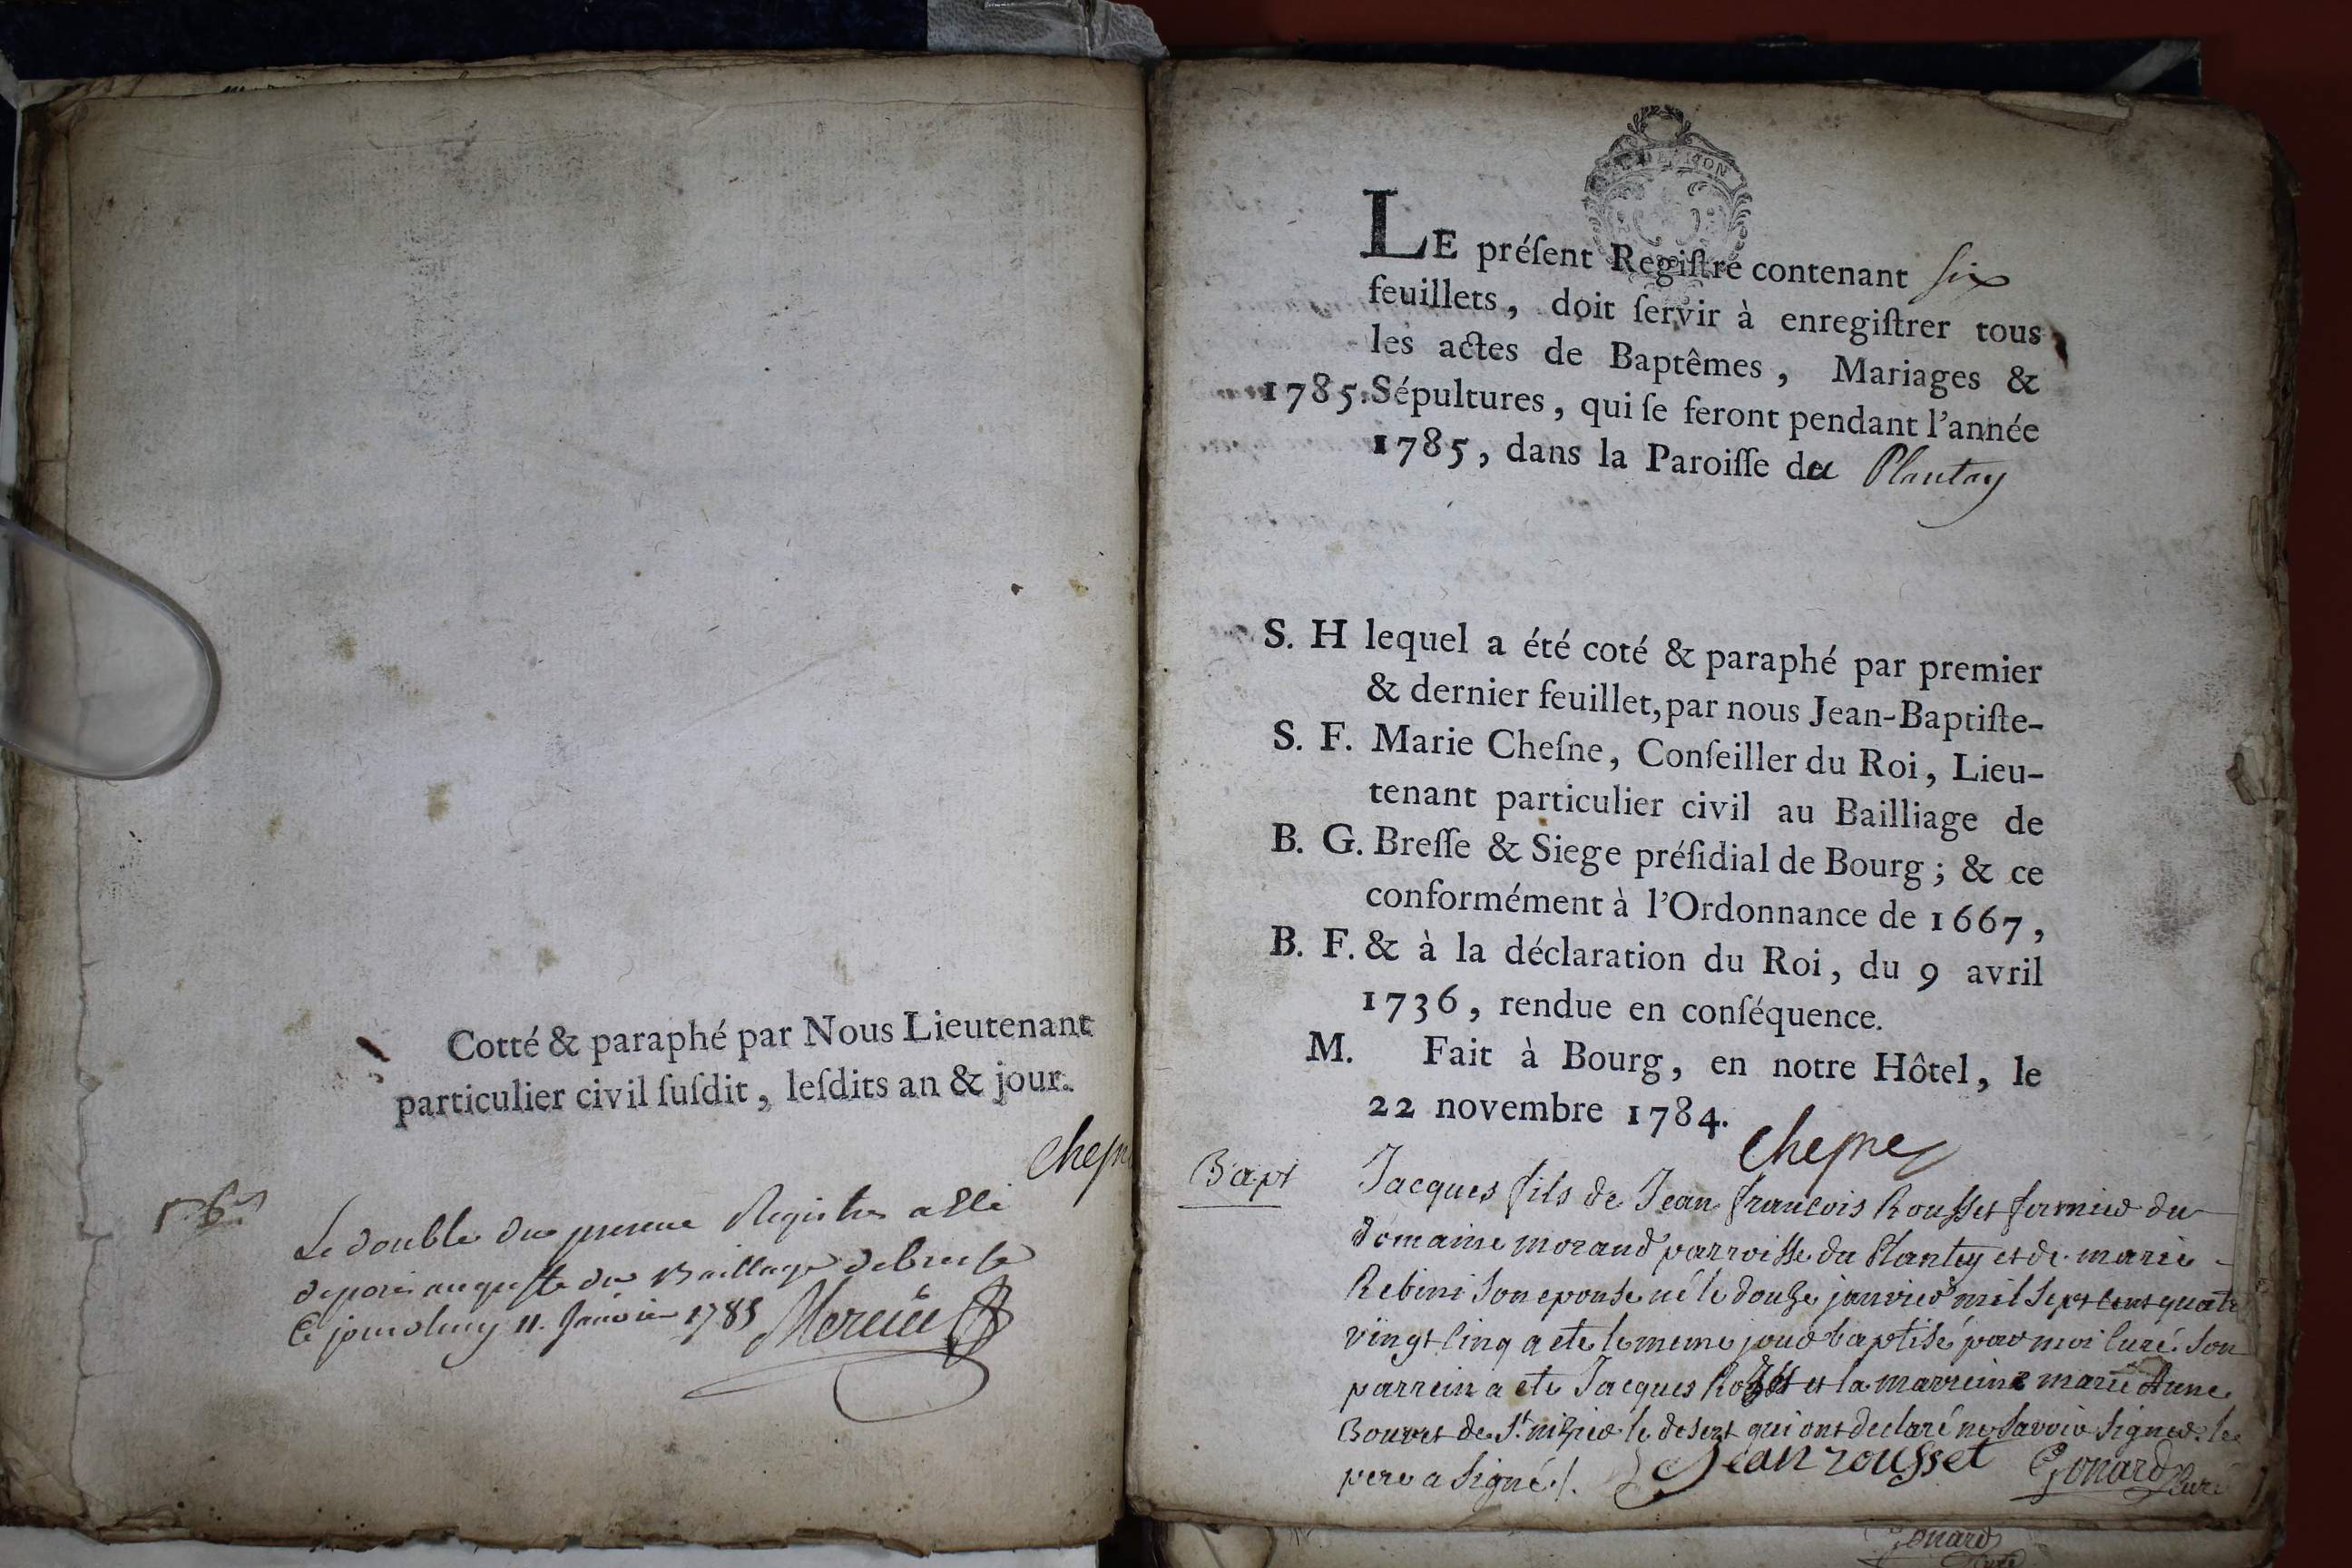 Cotté & paraphé par Nous Lieutenant
particulier civil ſuſdit, leſdits an & jour.
Cheſn
Le double du Regiſtre a Eté
au greffe du Bailliage de breſſe
Ce jourdhuy 11. Janvier 1785 Mercier
LE préſent Regiſtre contenant ſix
feuillets, doit ſervir à enregiſtrer tous
les actes de Baptêmes, Mariages &
1785. Sépultures, qui ſe feront pendant l'année
1785, dans la Paroiſſe du Plantay
S. H lequel a été coté & paraphé par premier
& dernier feuillet, par nous Jean-Baptiſte-
S. F. Marie Cheſne, Conſeiller du Roi, Lieu-
tenant particulier civil au Bailliage de
B. G. Breſſe & Siege préſidial de Bourg; & ce
conformément à l'Ordonnance de 1667,
B. F. & à la déclaration du Roi, du 9 avril
1736, rendue en conſéquence.
M. Fait à Bourg, en notre Hôtel, le
22 novembre 1784.
Cheſne
Bapt Jacques fils de Jean francois Rousset fermier du
domaine morand parroisse du Plantey et de marie
Rebini Son epouse né le douze janvier mil Sept cent quatre
vingt cinq a ete le meme jour baptisé par moi curé. Son
parrein a ete Jacques et la marreine marie Anne
Bouvet de St. nizier le desert qui ont declaré ne Savoir Signer. le
pere a Signé ./. Jean rousset Gonard Curé
Gonard
Curé